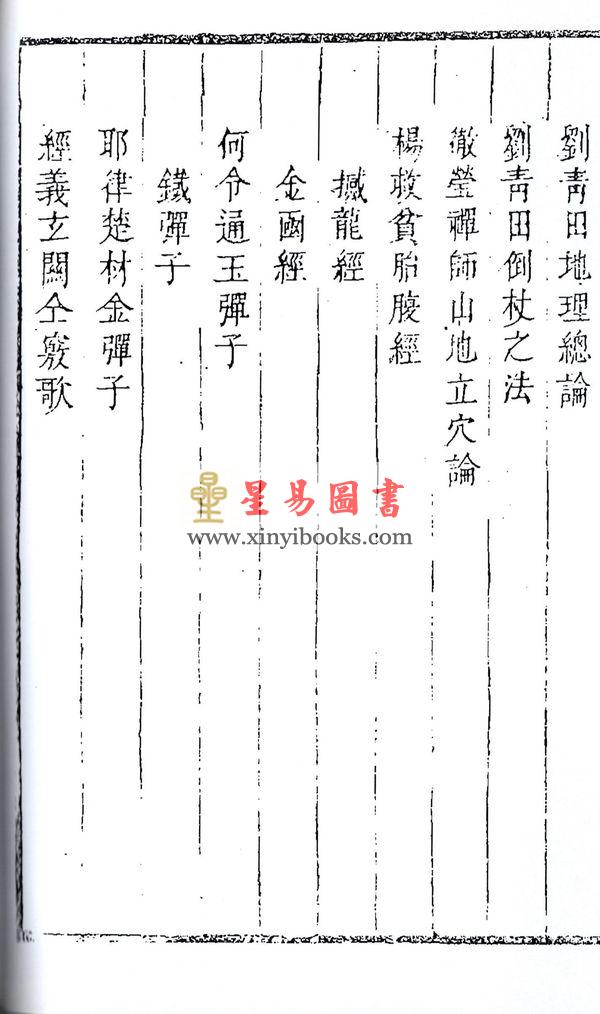 劉青田地理總論
劉青田倒杖之法
徹瑩禪師山地立穴論
楊救貧胎腹經
撼龍經
金函經
何令通玉彈子
鐵彈子
耶律楚材金彈子
經義玄關仝竅歌
星易圖書
www.xinyibooks.com